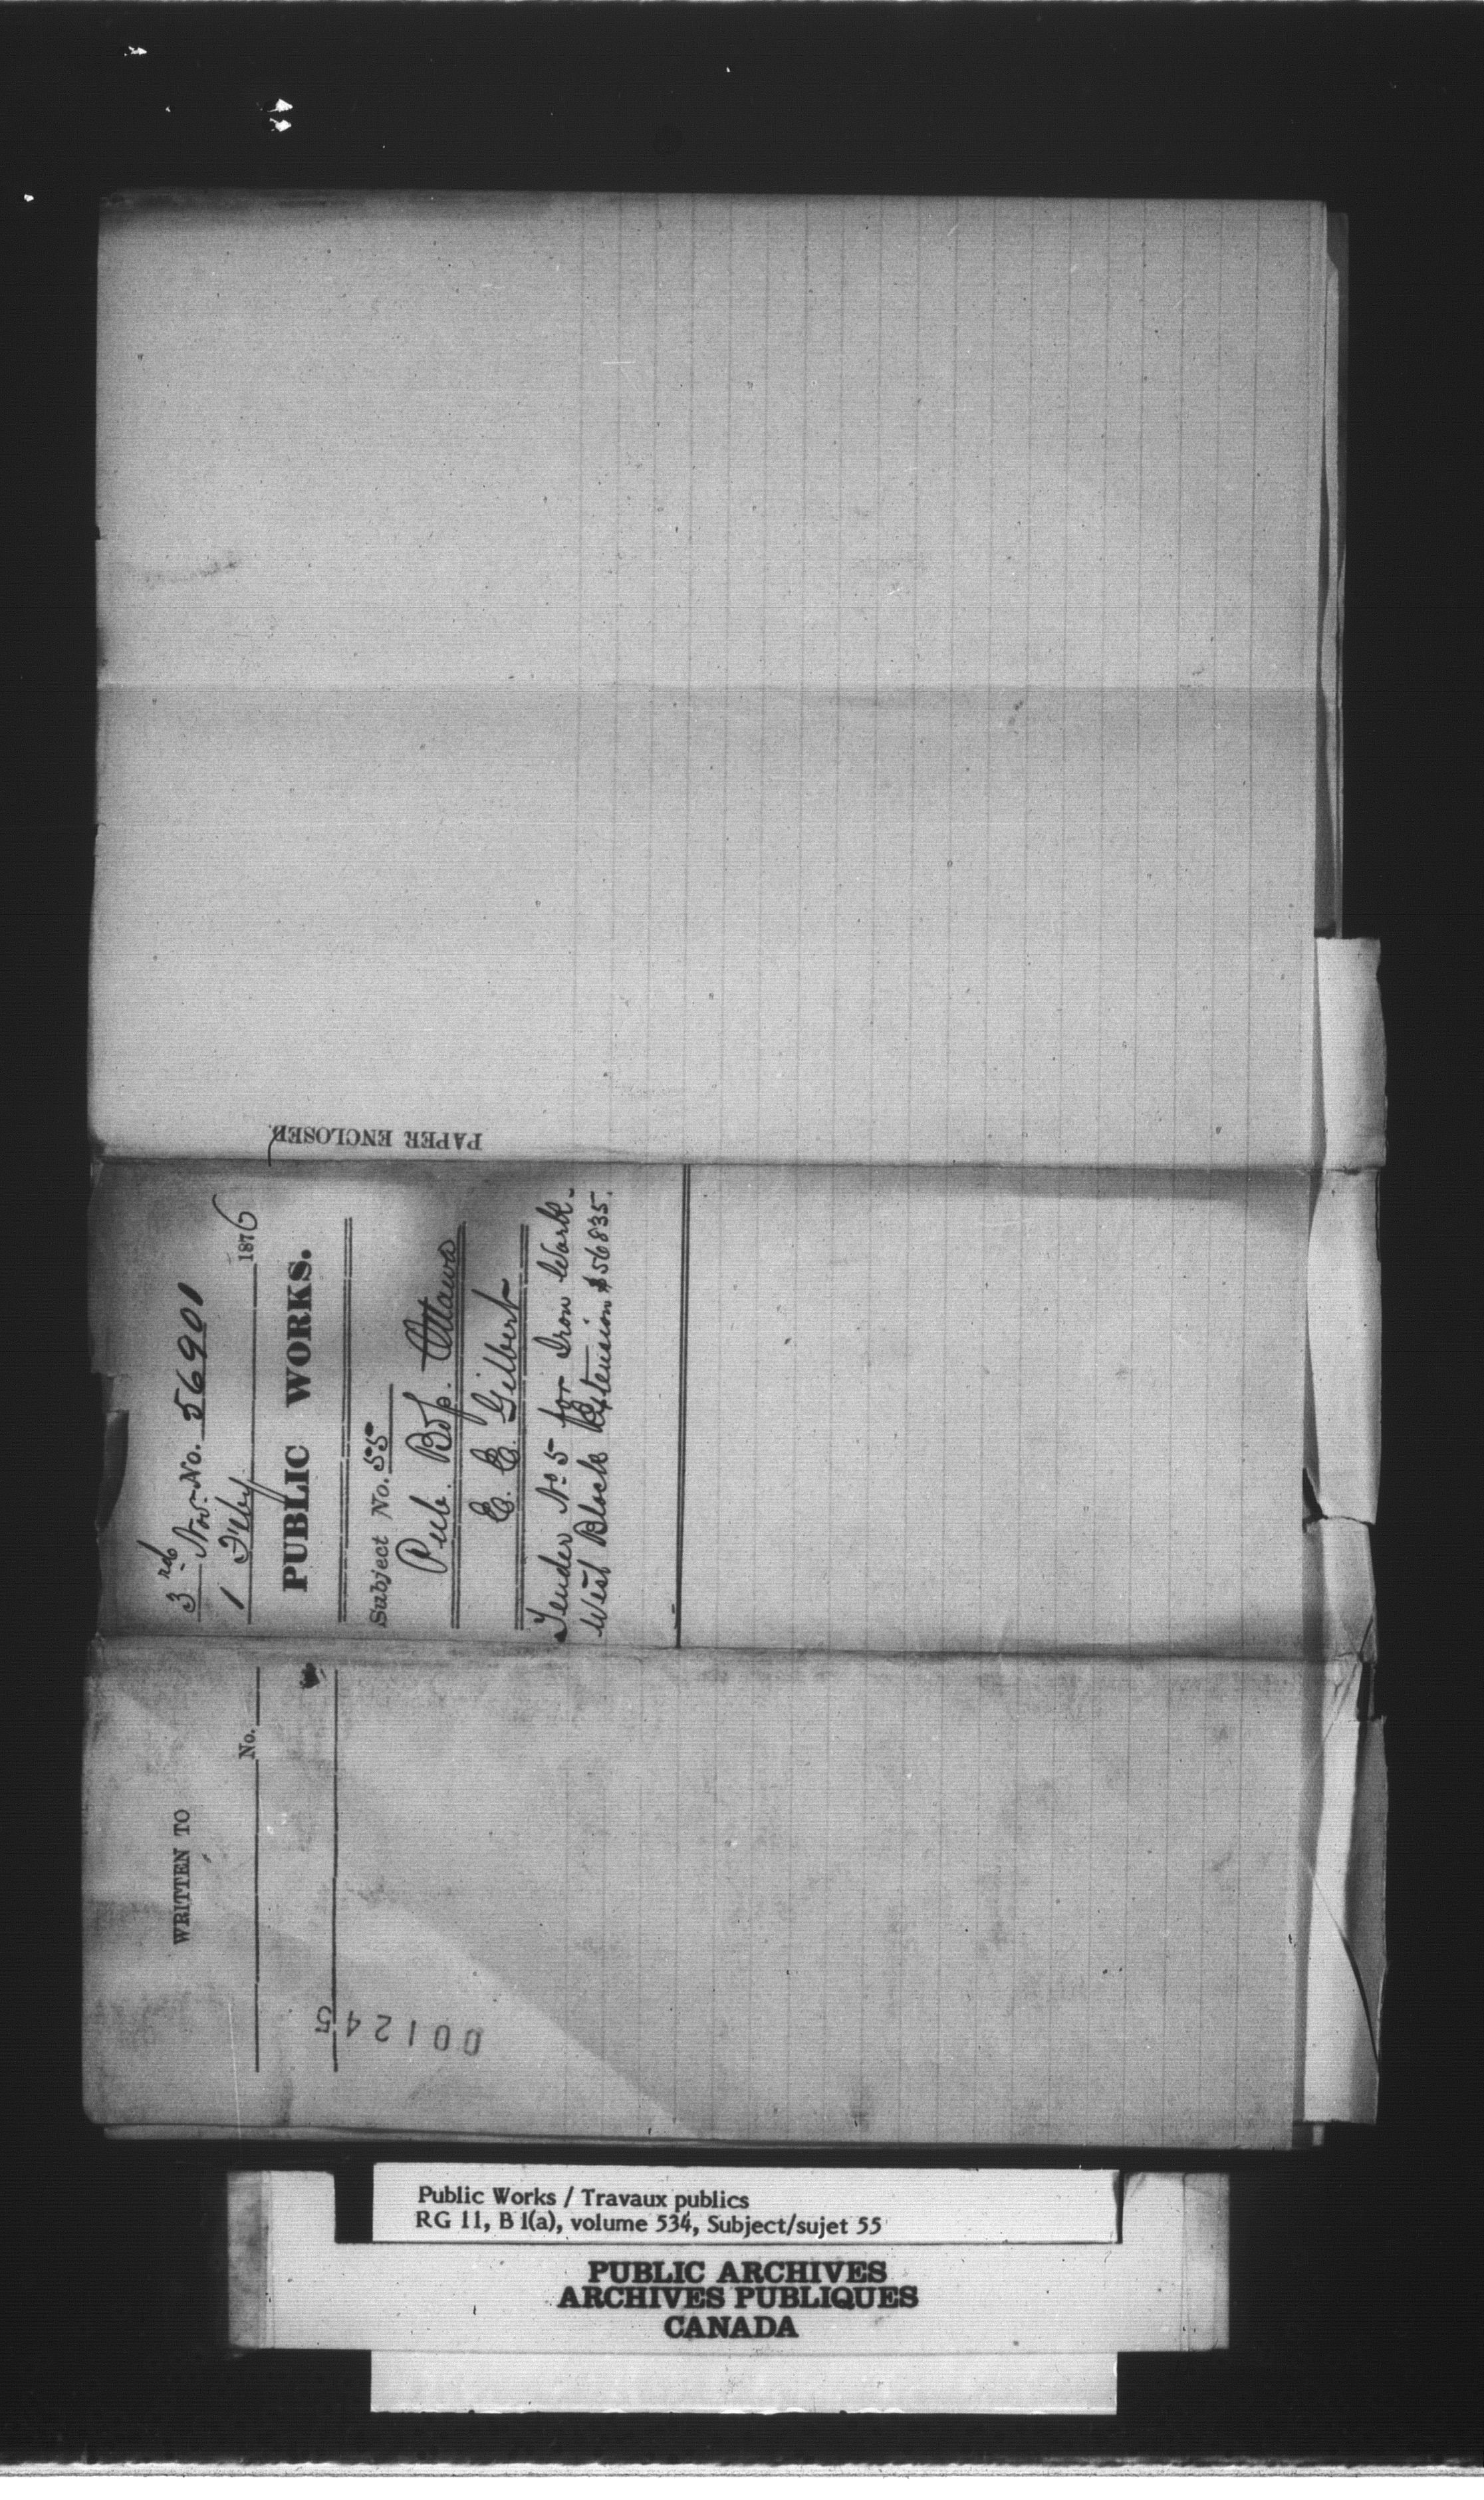 PAPER ENCLOSED.
3rd Nov. No. 56901
1 Feby 1876
PUBLIC WORKS.
Subject No. 55
Pub. Bdgs. Ottawa
E. E. Gilbert
Tender No 5 for Iron Work -
West Block Extension $56835.
WRITTEN TO
No.
001245
Public Works / Travaux publics
RG 11, B 1(a), volume 534, Subject/sujet 55
PUBLIC ARCHIVES
ARCHIVES PUBLIQUES
CANADA